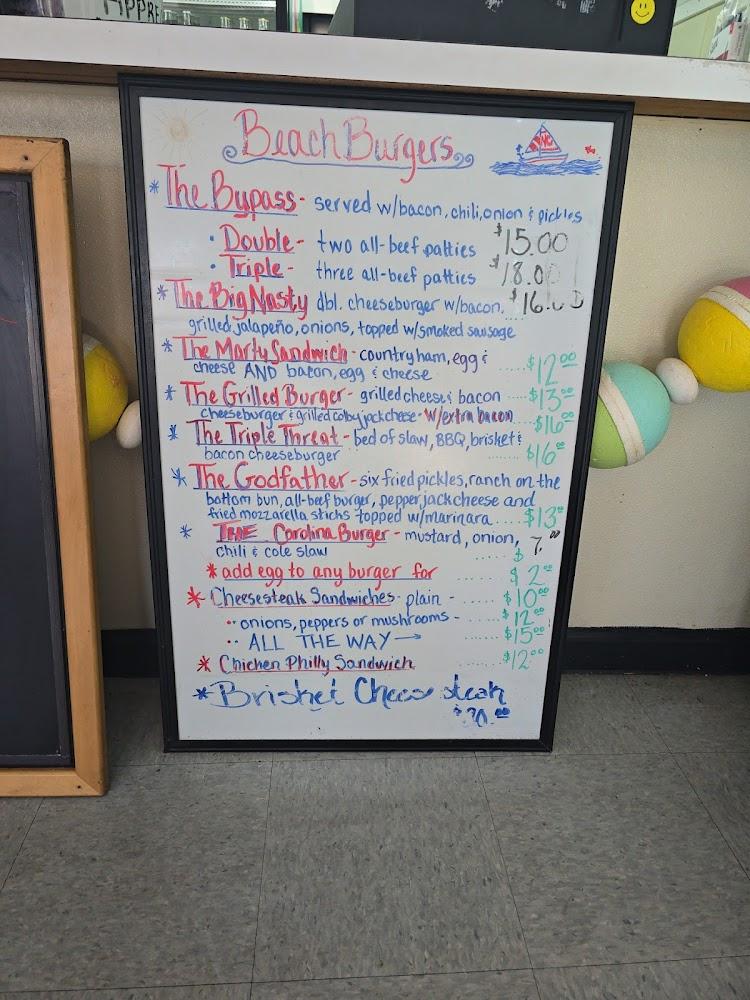 Beach Burgers
NC
* The Bypass - served w/bacon, chili, onion & pickles
• Double - two all-beef patties $15.00
• Triple - three all-beef patties $18.00
* The Big Nasty dbl. cheeseburger w/bacon, $16.00
grilled jalapeño, onions, topped w/smoked sausage
* The Marty Sandwich - country ham, egg &
cheese AND bacon, egg & cheese ..... $12.00
* The Grilled Burger - grilled cheese & bacon ..... $13.00
cheeseburger & grilled colby jack cheese - w/extra bacon $16.00
* The Triple Threat - bed of slaw, BBQ, brisket &
bacon cheeseburger ..... $16.00
* The Godfather - six fried pickles, ranch on the
bottom bun, all-beef burger, pepper jack cheese and
fried mozzarella sticks topped w/marinara ..... $13.00
* THE Carolina Burger - mustard, onion,
chili & cole slaw ..... $7.00
* add egg to any burger for ..... $2.00
* Cheesesteak Sandwiches - plain - ..... $10.00
•• onions, peppers or mushrooms - $12.00
•• ALL THE WAY → ..... $15.00
* Chicken Philly Sandwich ..... $12.00
* Brisket Cheese steak